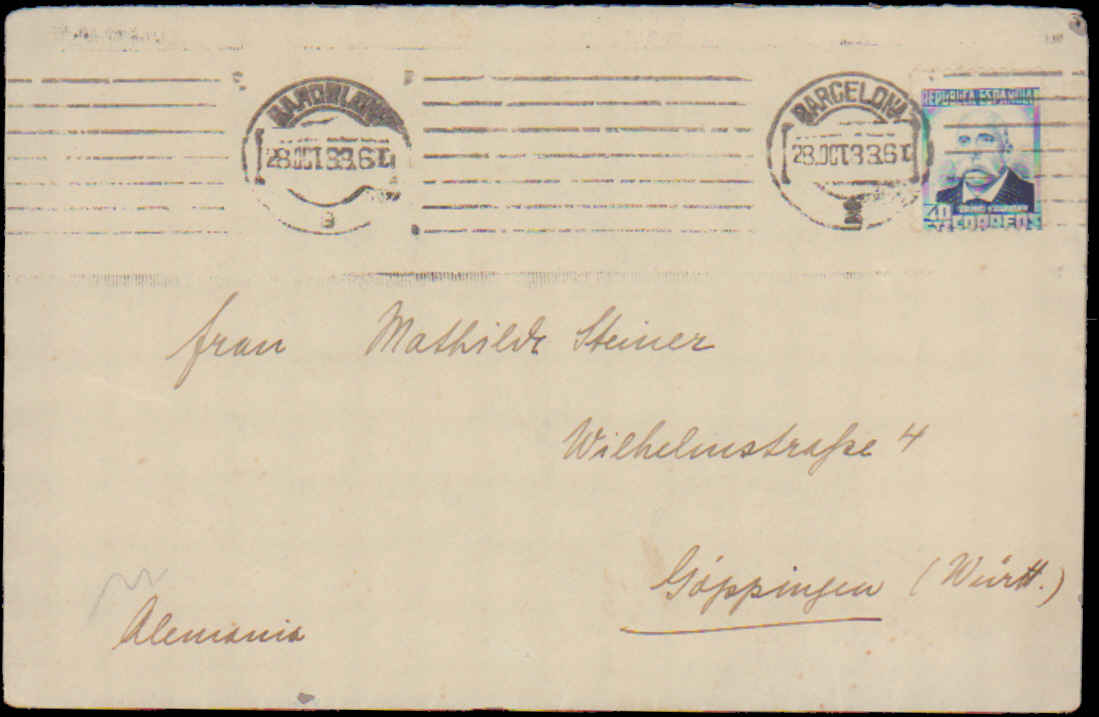 BARCELONA
28.OCT33.6T
BARCELONA
28.OCT33.6T
REPUBLICA ESPAÑOLA
40 CTS CORREOS
Frau Mathilde Steiner
Wilhelmstraße 4
Göppingen (Württ.)
Alemania